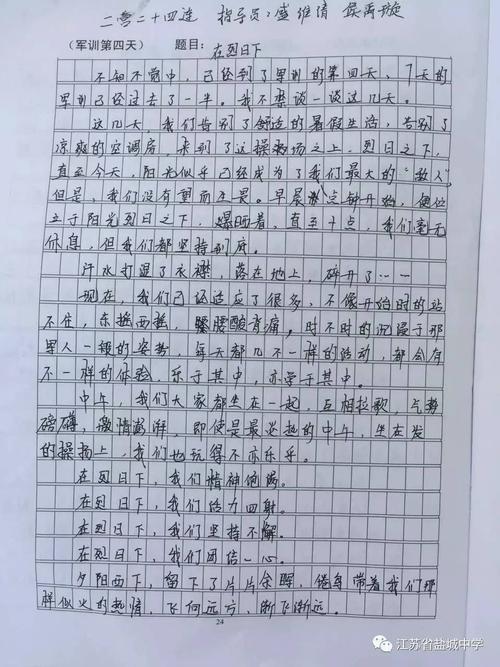 二营二十四连 指导员:盛维清 侯禹璇
(军训第四天) 题目:在烈日下
不知不觉中,已经到了军训的第四天,7天的
军训已经过去了一半。我不禁谈一谈这几天。
这几天,我们告别了舒适的暑假生活,告别了
凉爽的空调房,来到了这操场之上,烈日之下,
直至今天,阳光似乎已经成为了我们最大的“敌人”
但是,我们没有望而生畏。早晨八点钟开始,便位
立于阳光烈日之下,曝晒着,直至十点,我们毫无
休息,但我们都坚持到底。
汗水打湿了衣襟,落在地上,碎开了……
现在,我们已经适应了很多,不像开始时的站
不住,东摇西摇,腰酸背痛,时不时的沉浸于那
军人一般的姿势,每天都几不一样的活动,都会有
不一样的体验,乐于其中,亦学于其中。
中午,我们大家都坐在一起,互相拉歌,气势
磅礴,激情澎湃,即使是最炎热的中午,坐在发
的操场上,我们也玩得不亦乐乎。
在烈日下,我们精神饱满。
在烈日下,我们活力四射。
在烈日下,我们坚持不懈。
在烈日下,我们团结一心。
夕阳西下,留下了片片余晖,倦鸟带着我们那
样似火的热情,飞向远方,渐飞渐远。
24
江苏省盐城中学